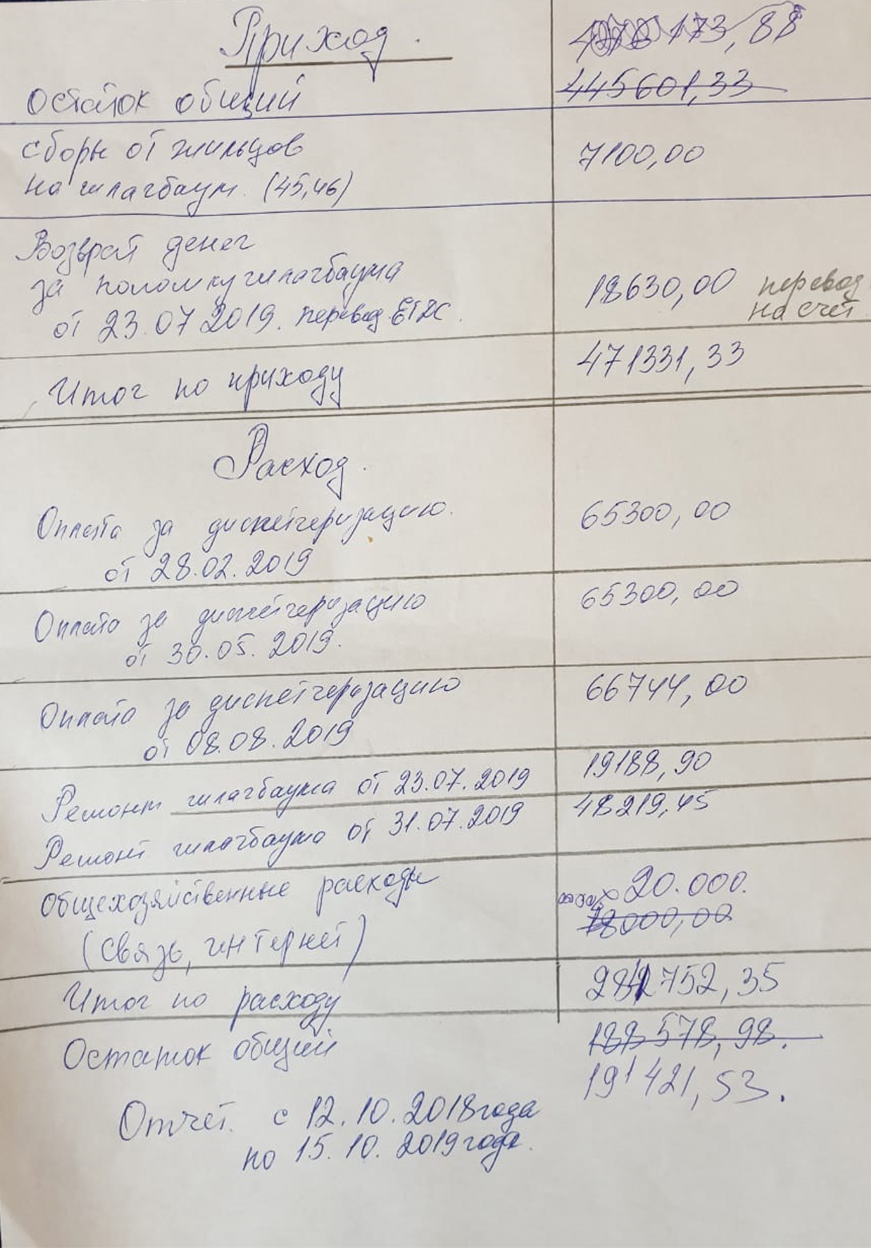 Приход.
173,88
Остаток общий 445601,33
сборы от жильцов 7100,00
на шлагбаум. (45,46)
Возврат денег
за поломку шлагбаума 18630,00 перевод
от 23.07.2019. перевод на счет
Итог по приходу 471331,33
Расход.
Оплата за диспетчеризацию. 65300,00
от 28.02.2019
Оплата за диспетчеризацию 65300,00
от 30.05.2019.
Оплата за диспетчеризацию 66744,00
от 08.08.2019
Ремонт шлагбаума от 23.07.2019 19188,90
Ремонт шлагбаума от 31.07.2019 48219,45
Общехозяйственные расходы 20.000.
(связь, интернет) 18000,00
Итог по расходу 284752,35
Остаток общий 188578,98.
191421,53.
Отчет с 12.10.2018 года
по 15.10.2019 года.